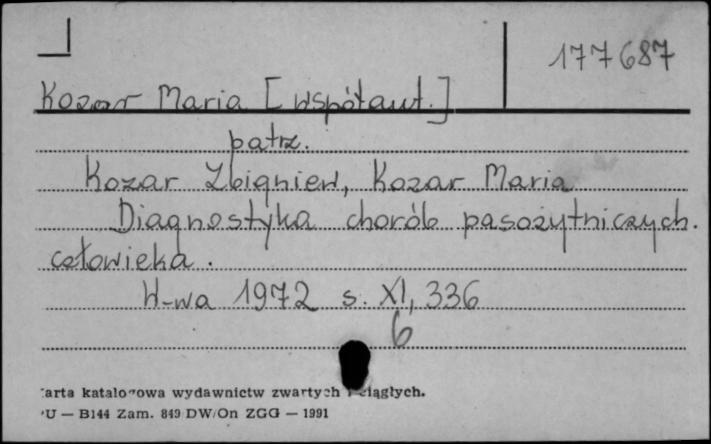 177687
Kozar Maria [współaut.]
patrz.
Kozar Zbigniew, Kozar Maria
Diagnostyka chorób pasożytniczych.
człowieka.
W-wa 1972 s. XI, 336
6
arta katalogowa wydawnictw zwartych i ciągłych.
U — B144 Zam. 849 DW/On ZGG — 1991